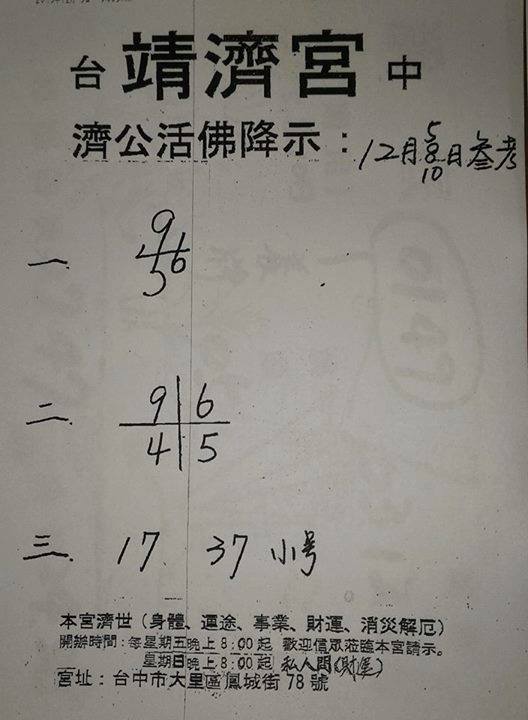 台 靖濟宮 中
濟公活佛降示：12月5 8 10日參考
一. 9 4 6 5
二. 9 6
4 5
三. 17 37 小号
本宮濟世（身體、運途、事業、財運、消災解厄）
開辦時間：每星期五晚上8:00起 歡迎信眾蒞臨本宮請示。
星期日晚上8:00起 私人問(財運)
宮址：台中市大里區鳳城街78號